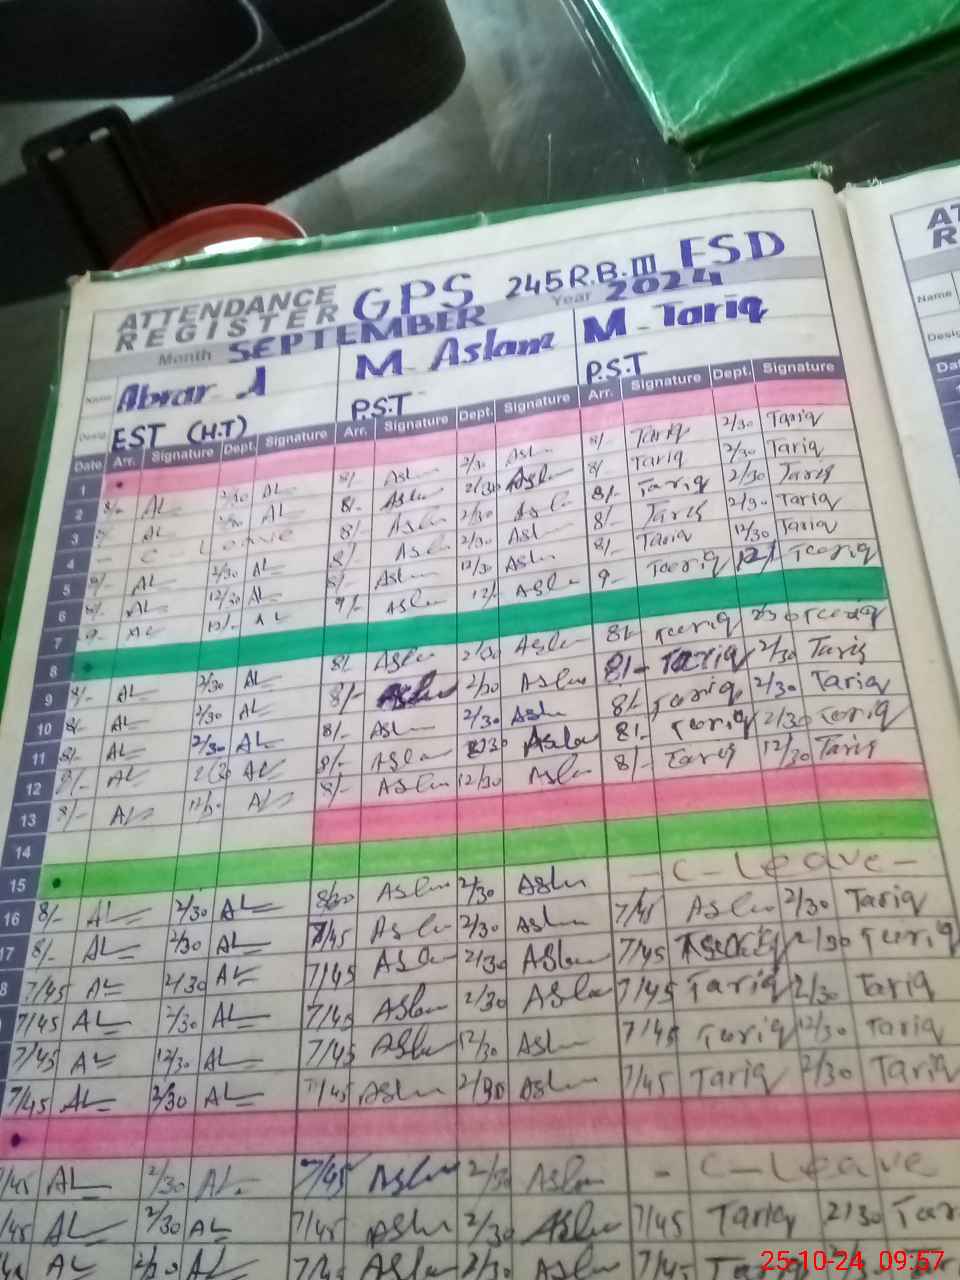 ATTENDANCE REGISTER GPS 245 R.B. III FSD
Month SEPTEMBER Year 2024
Name Abrar A M. Aslam M. Tariq
Desig. EST (H.T) P.S.T P.S.T
Date Arr. Signature Dept. Signature Arr. Signature Dept. Signature Arr. Signature Dept. Signature
1
2 8/- AL 2/30 AL 8/- Aslam 2/30 Aslam 8/- Tariq 2/30 Tariq
3 AL AL 8/- Aslam 2/30 Aslam 8/- Tariq 2/30 Tariq
4 - C - Leave 8/- Aslam 2/30 Aslam 8/- Tariq 2/30 Tariq
5 8/- AL 2/30 AL 8/- Aslam 2/30 Aslam 8/- Tariq 2/30 Tariq
6 8/- AL 12/30 AL 8/- Aslam 12/30 Aslam 8/- Tariq 12/30 Tariq
7 9- AL 12/- AL 9/- Aslam 12/- Aslam 9- Tariq Tariq
8
9 8/- AL 2/30 AL 8/- Aslam 2/30 Aslam 8/- Tariq 2/30 Tariq
10 8/- AL 2/30 AL 8/- Aslam 2/30 Aslam 8/- Tariq 2/30 Tariq
11 8/- AL 2/30 AL 8/- Aslam 2/30 Aslam 8/- Tariq 2/30 Tariq
12 8/- AL 2/30 AL 8/- Aslam 2/30 Aslam 8/- Tariq 2/30 Tariq
13 8/- AL 12/30 AL 8/- Aslam 12/30 Aslam 8/- Tariq 12/30 Tariq
14
15
16 8/- AL 2/30 AL Aslam 2/30 Aslam - C - Leave -
17 8/- AL 2/30 AL 7/45 Aslam 2/30 Aslam 7/45 Aslam 2/30 Tariq
8 7/45 AL 2/30 AL 7/45 Aslam 2/30 Aslam 7/45 2/30 Tariq
7/45 AL 2/30 AL 7/45 Aslam 2/30 Aslam 7/45 Tariq 2/30 Tariq
7/45 AL 12/30 AL 7/45 Aslam 12/30 Aslam 7/45 Tariq 12/30 Tariq
7/45 AL 2/30 AL 7/45 Aslam 2/30 Aslam 7/45 Tariq 2/30 Tariq
7/45 AL 2/30 AL 7/45 Aslam 2/30 Aslam - C - Leave
7/45 AL 2/30 AL 7/45 Aslam 2/30 Aslam 7/45 Tariq 2/30 Tar
AL 2/30 AL 7/45 Aslam 2/30 Aslam 7/45
AT
R
Name
25-10-24 09:57